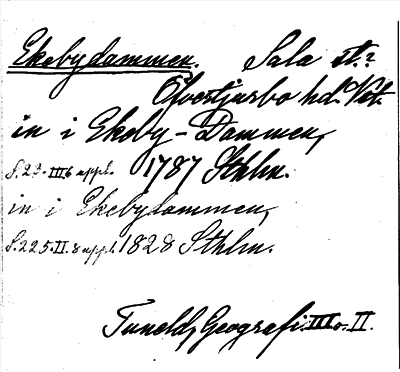 Ekebydammen. Sala st.?
Öfvertjurbo hd. Vstl.
in i Ekeby-Dammen,
S. 23. III. 6 uppl. 1787 Sthlm.
in i Ekebydammen,
S. 225. II. 8 uppl. 1828 Sthlm.
Tuneld, Geografi. III o. II.